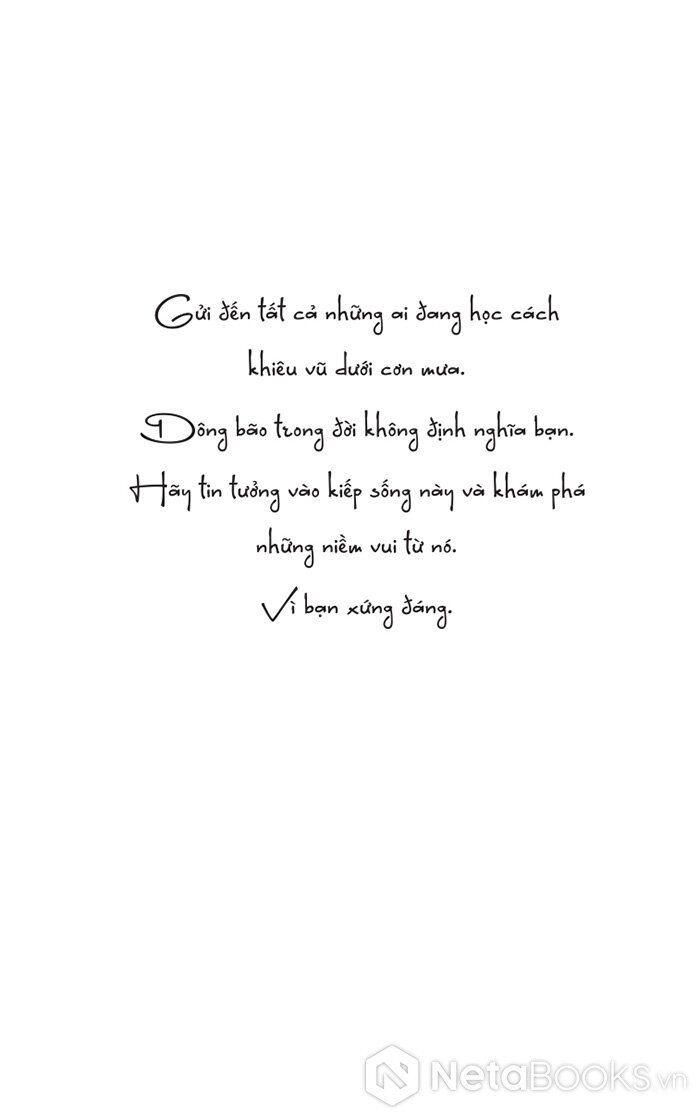 Gửi đến tất cả những ai đang học cách
khiêu vũ dưới cơn mưa.
Dông bão trong đời không định nghĩa bạn.
Hãy tin tưởng vào kiếp sống này và khám phá
những niềm vui từ nó.
Vì bạn xứng đáng.
NetaBooks.vn